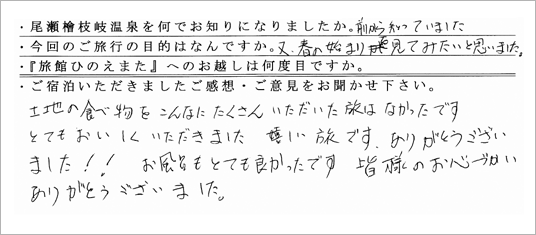 ・尾瀬檜枝岐温泉を何でお知りになりましたか。前から知っていました
・今回のご旅行の目的はなんですか。又、春の始まり見てみたいと思いました。
・『旅館ひのえまた』へのお越しは何度目ですか。
・ご宿泊いただきましたご感想・ご意見をお聞かせ下さい。
土地の食べ物をこんなにたくさんいただいた旅はなかったです
とてもおいしくいただきました 嬉しい旅です。ありがとうござい
ました!! お風呂もとても良かったです 皆様のお心づかい
ありがとうございました。